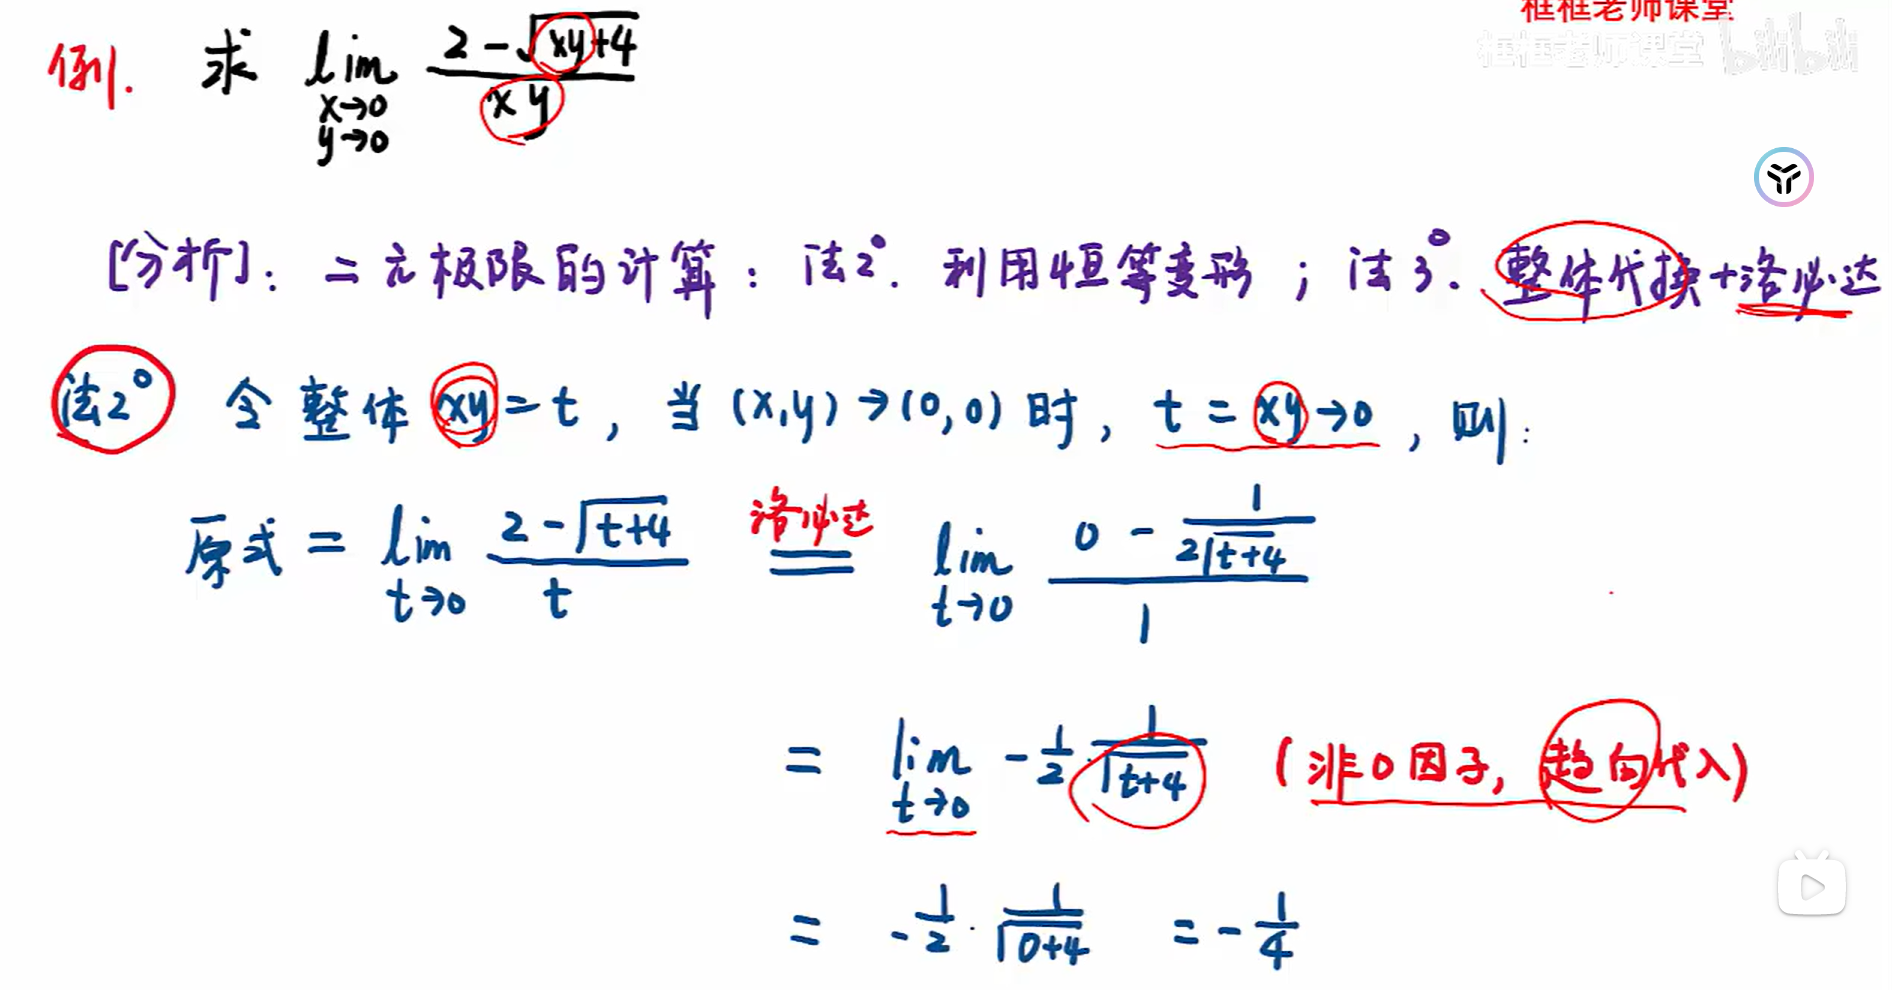 框框老师课堂
框框老师课堂 bilibili
例. 求 lim x→0 y→0 (2-√(xy+4))/(xy)
[分析]: 二元极限的计算: 法2°. 利用恒等变形; 法3°. 整体代换+洛必达
法2° 令整体 xy=t, 当(x,y)→(0,0)时, t=xy→0, 则:
原式 = lim t→0 (2-√(t+4))/t 洛必达 = lim t→0 (0 - 1/(2√(t+4)))/1
= lim t→0 -1/2 · 1/√(t+4) (非0因子, 趋向代入)
= -1/2 · 1/√(0+4) = -1/4